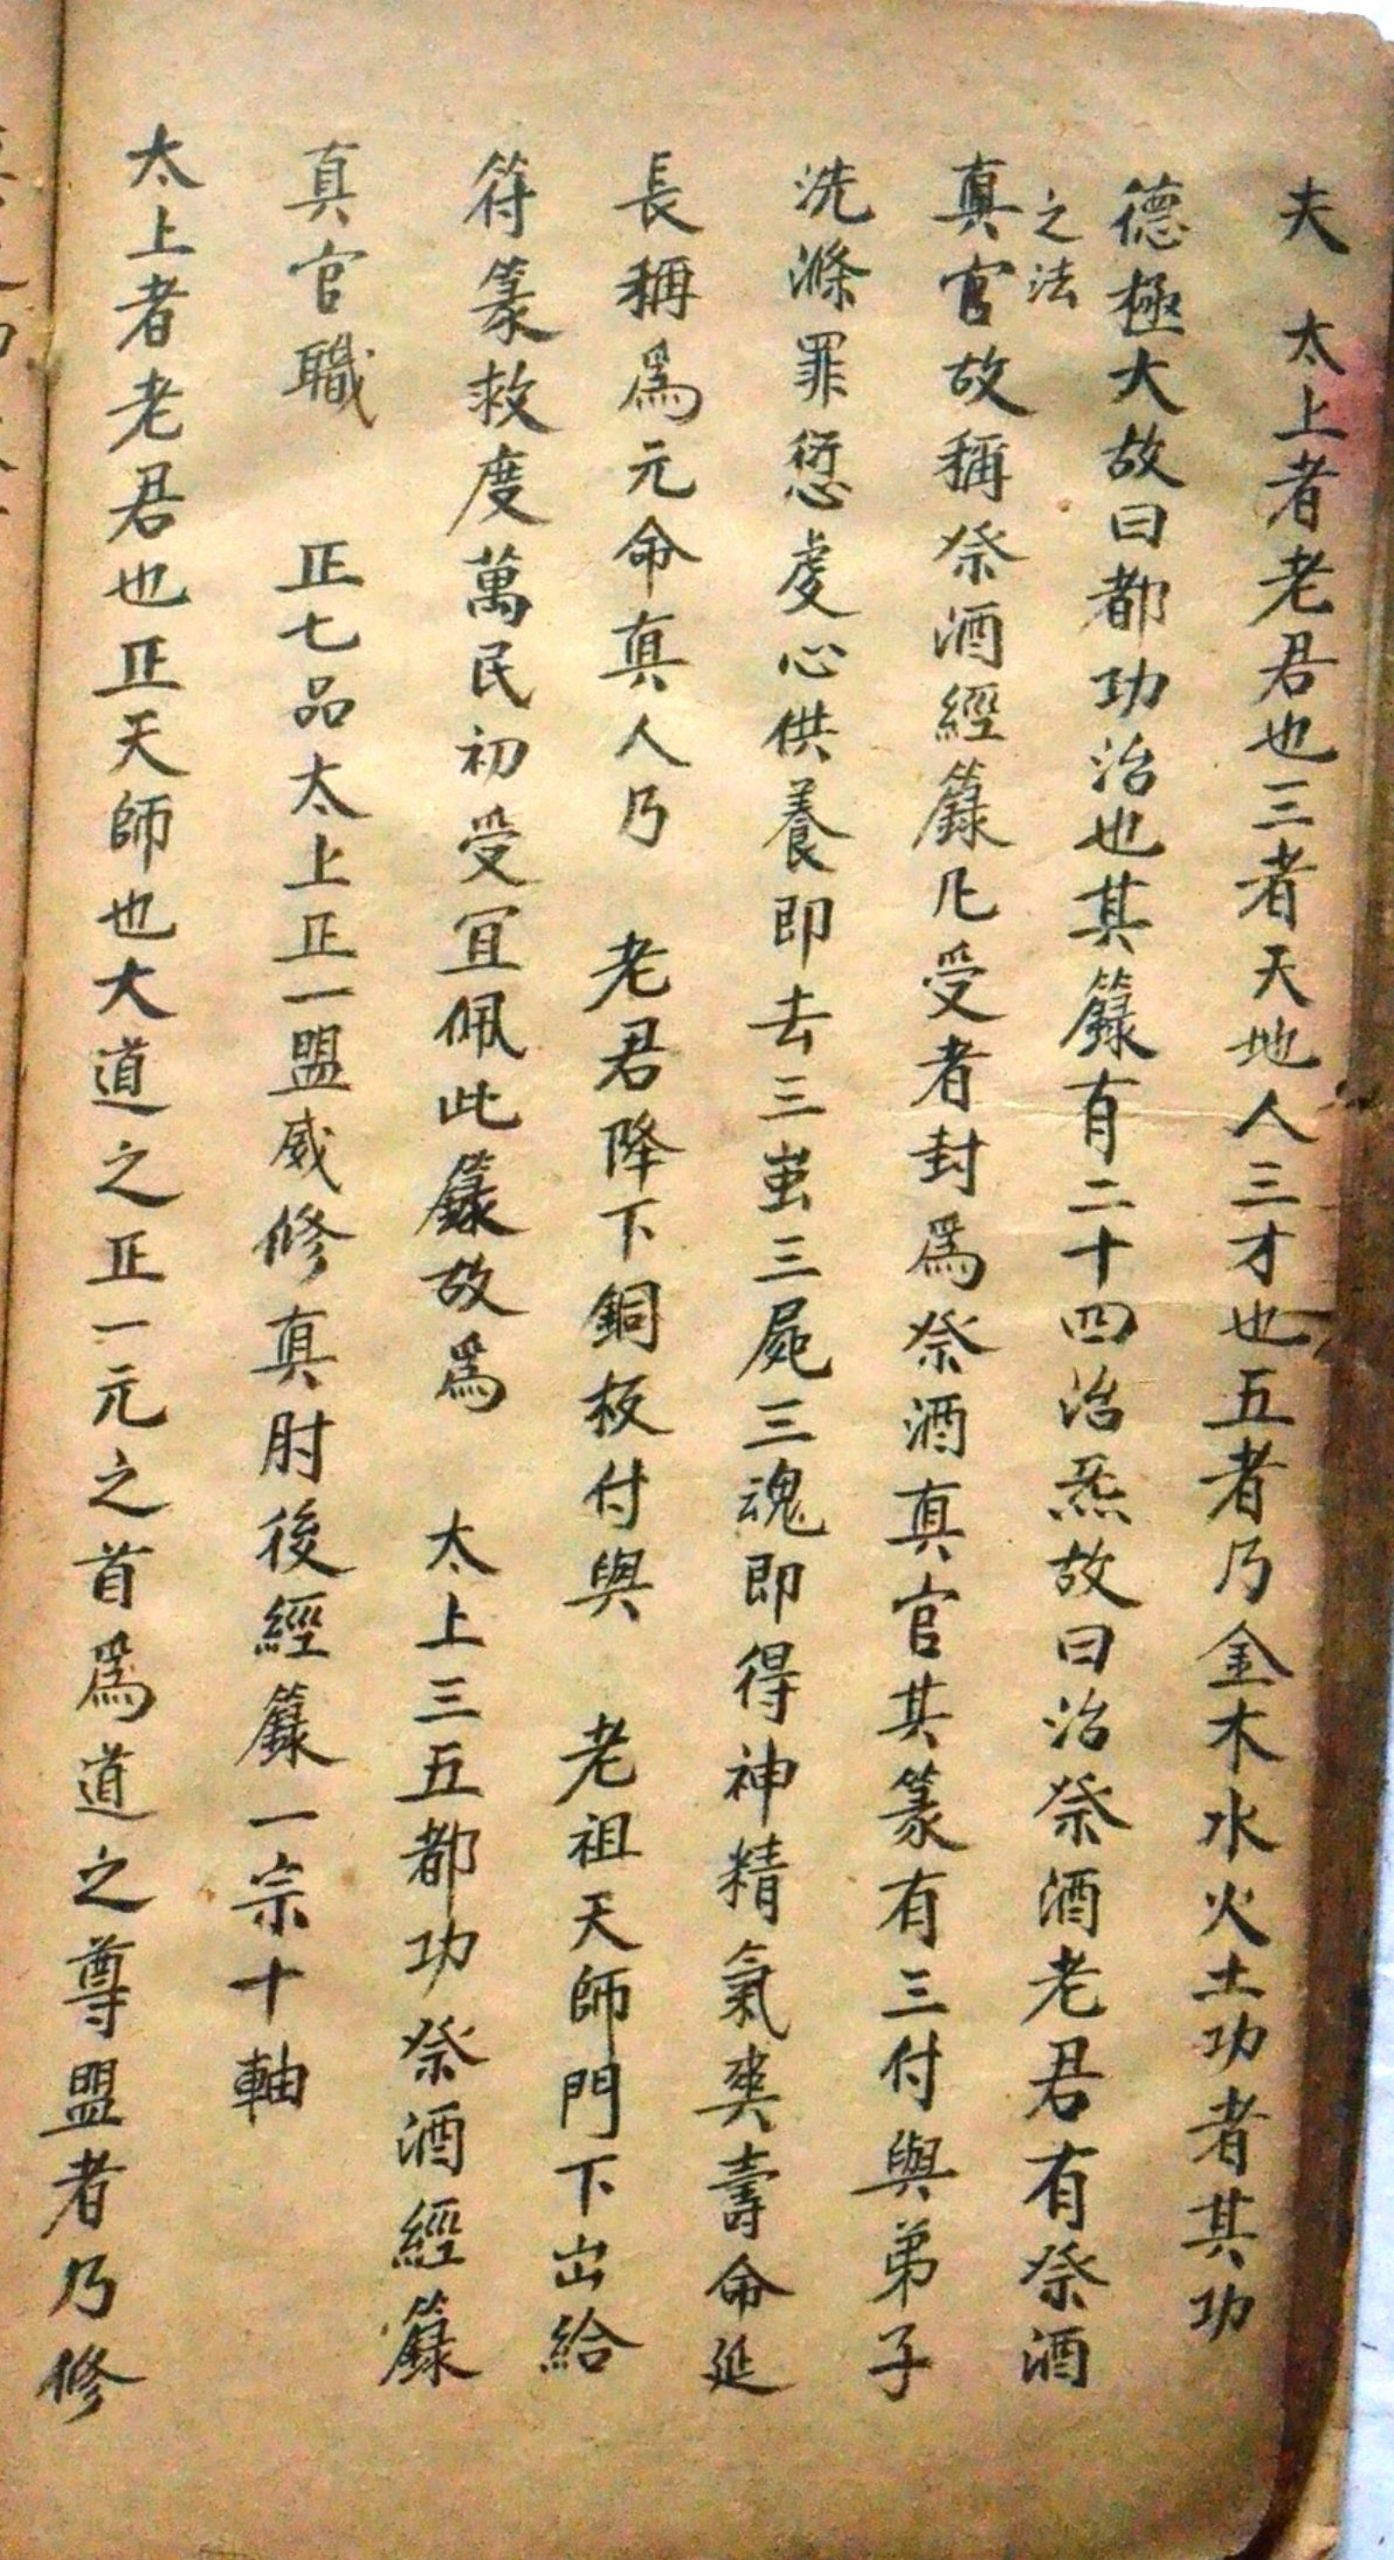 夫　太上者老君也三者天地人三才也五者乃金木水火土功者其功
德極大故曰都功治也其籙有二十四治炁故曰治祭酒老君有祭酒
之法
真官故稱祭酒經籙凡受者封為祭酒真官其篆有三付與弟子
洗滌罪愆虔心供養即去三蚩三屍三魂即得神精氣爽壽命延
長稱為元命真人乃　老君降下銅板付與　老祖天師門下出給
符篆救度萬民初受宜佩此籙故為　太上三五都功祭酒經籙
真官職　正七品太上正一盟威修真肘後經籙一宗十軸
太上者老君也正天師也大道之正一元之首為道之尊盟者乃修